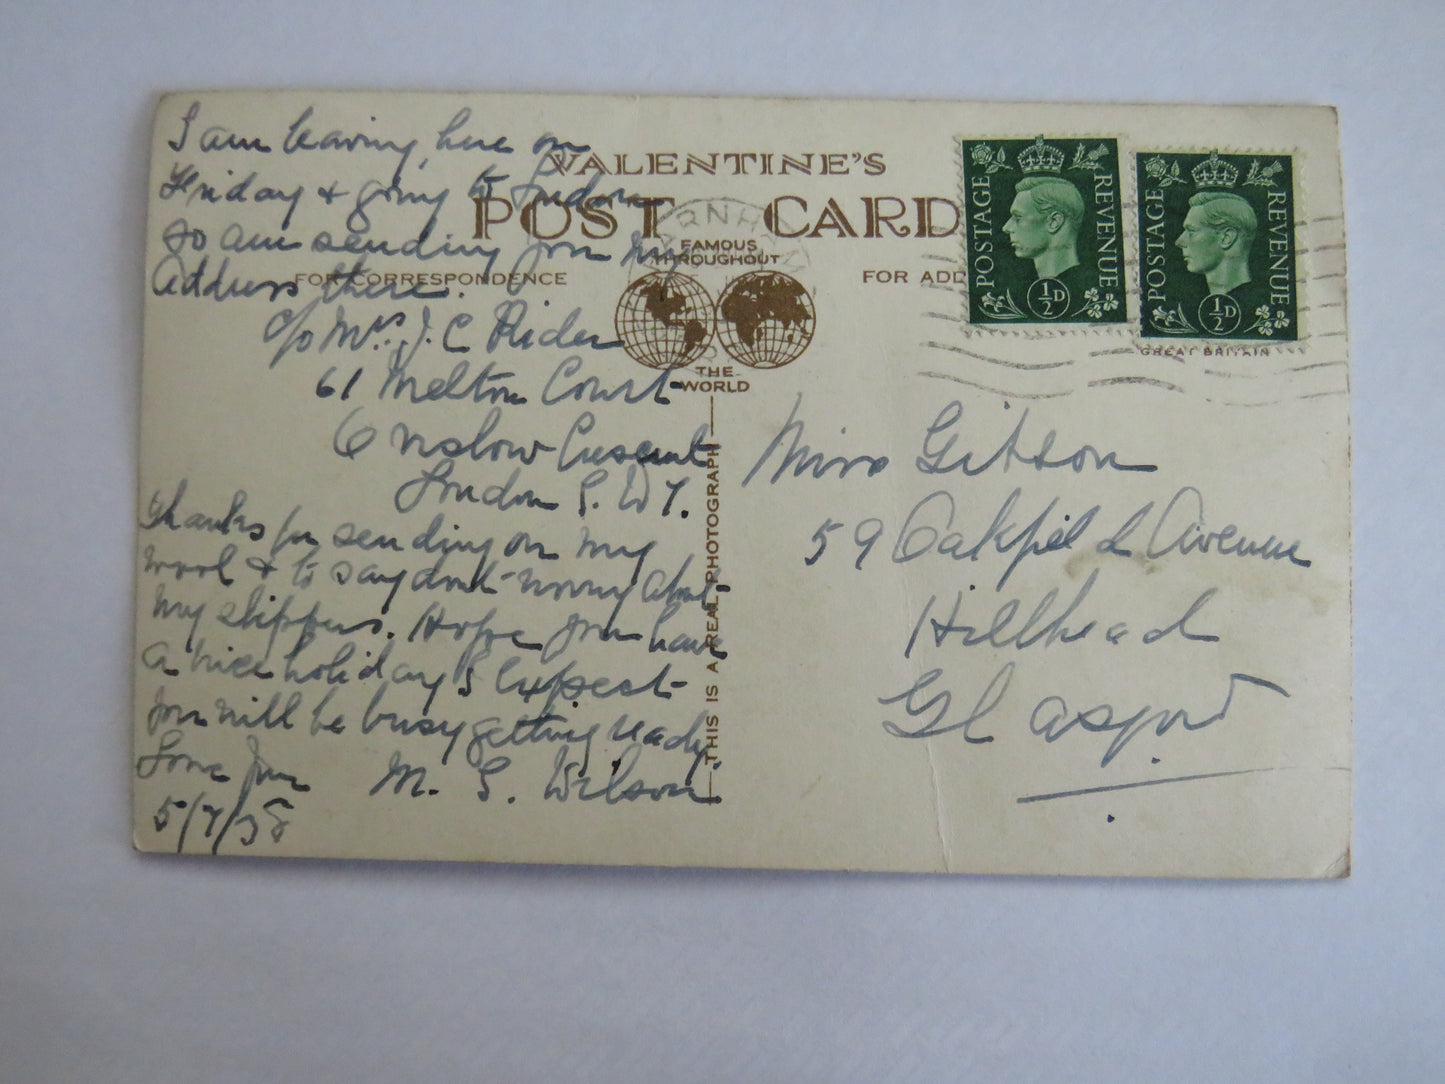 I am leaving here on
Friday & going to London
so am sending you my
address there.
c/o Mrs. J. C Rider
61 Melton Court
Onslow Crescent
London S. W 7.
Thanks for sending on my
wool & to say dont worry about
my slippers. Hope you have
a nice holiday I expect
you will be busy getting ready.
Love from M. S. Wilson
5/7/38
VALENTINE'S
POST CARD
FAMOUS
THROUGHOUT
THE
WORLD
FOR CORRESPONDENCE
FOR ADD
THIS IS A REAL PHOTOGRAPH
POSTAGE REVENUE
½D
POSTAGE REVENUE
½D
GREAT BRITAIN
Miss Gibson
59 Oakfield Avenue
Hillhead
Glasgow